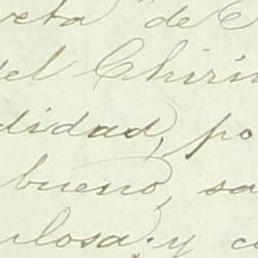 veta de C
del Chirin
didad, po
bueno, sa
ulosa y c